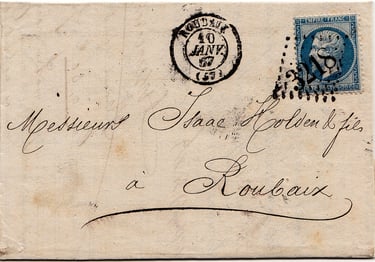 ROUBAIX
10
JANV.
67
(57)
EMPIRE FRANC
3218
Messieurs Isaac Holden & fils
à Roubaix